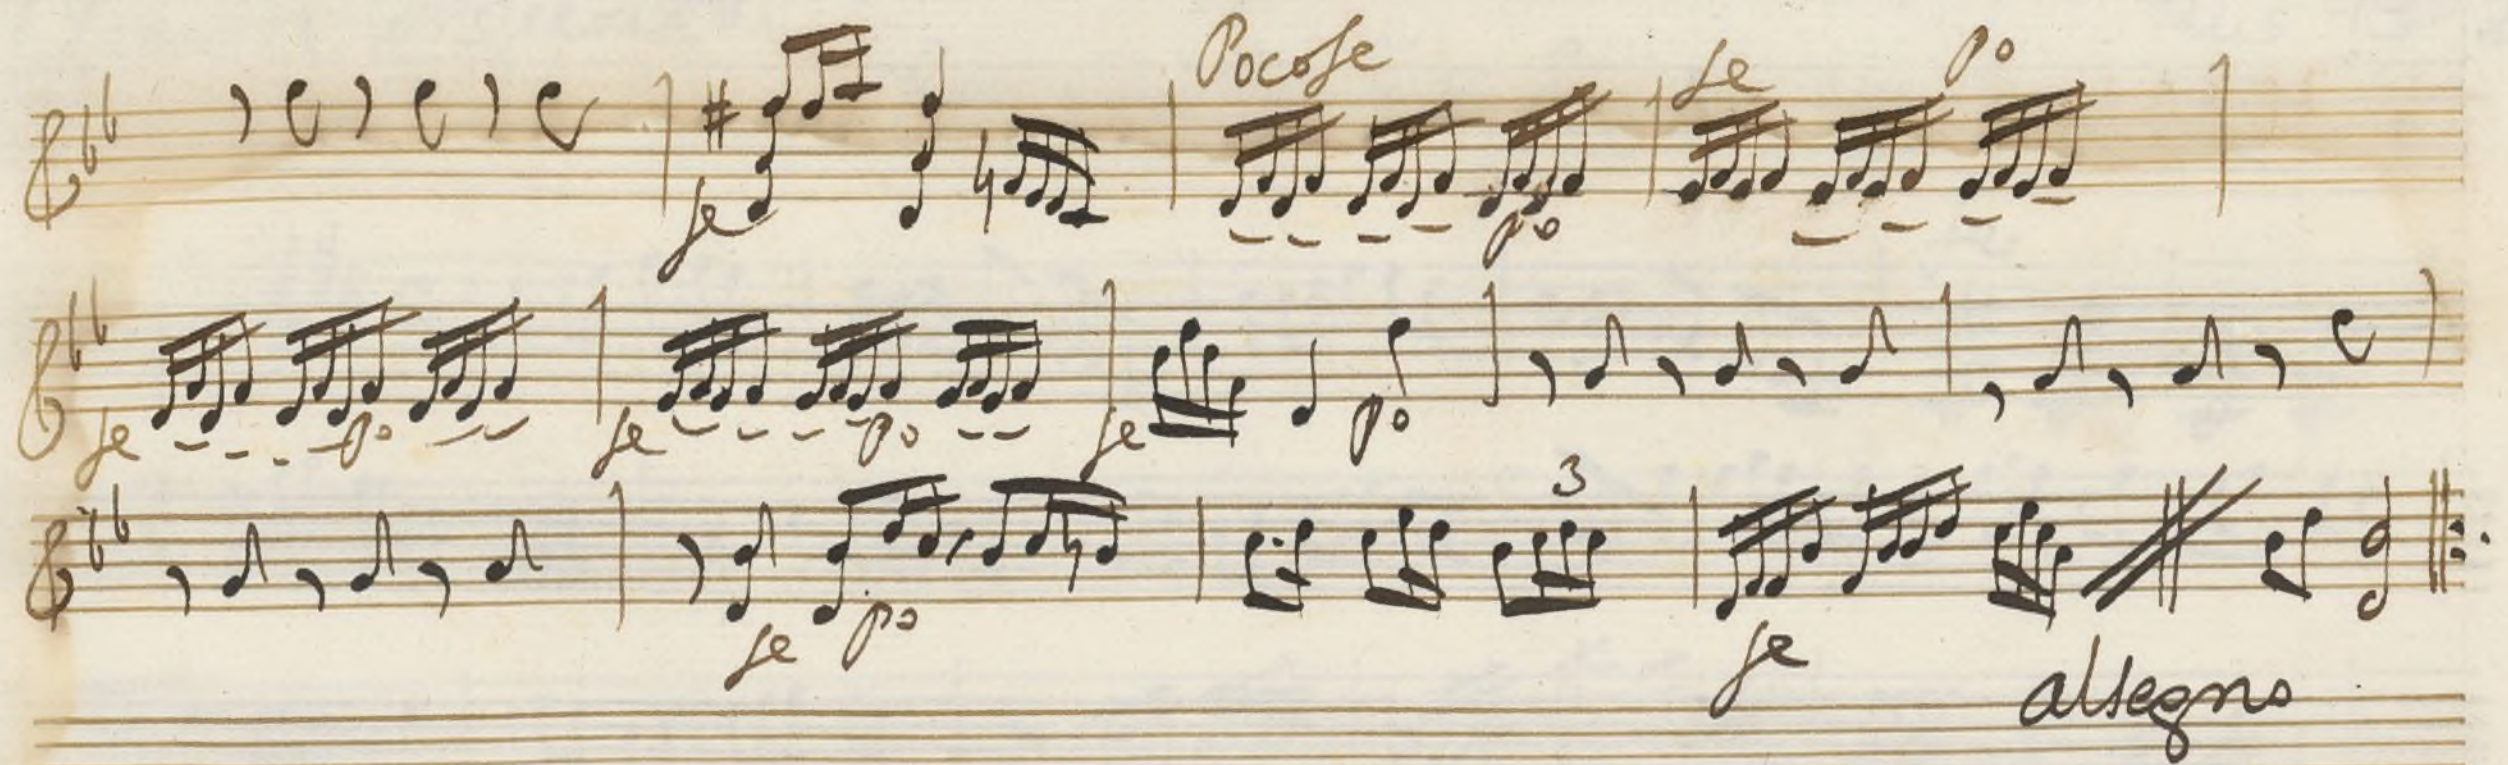 Pocofe fe po
fe po
fe po fe po fe po
3
fe po fe
alsegno